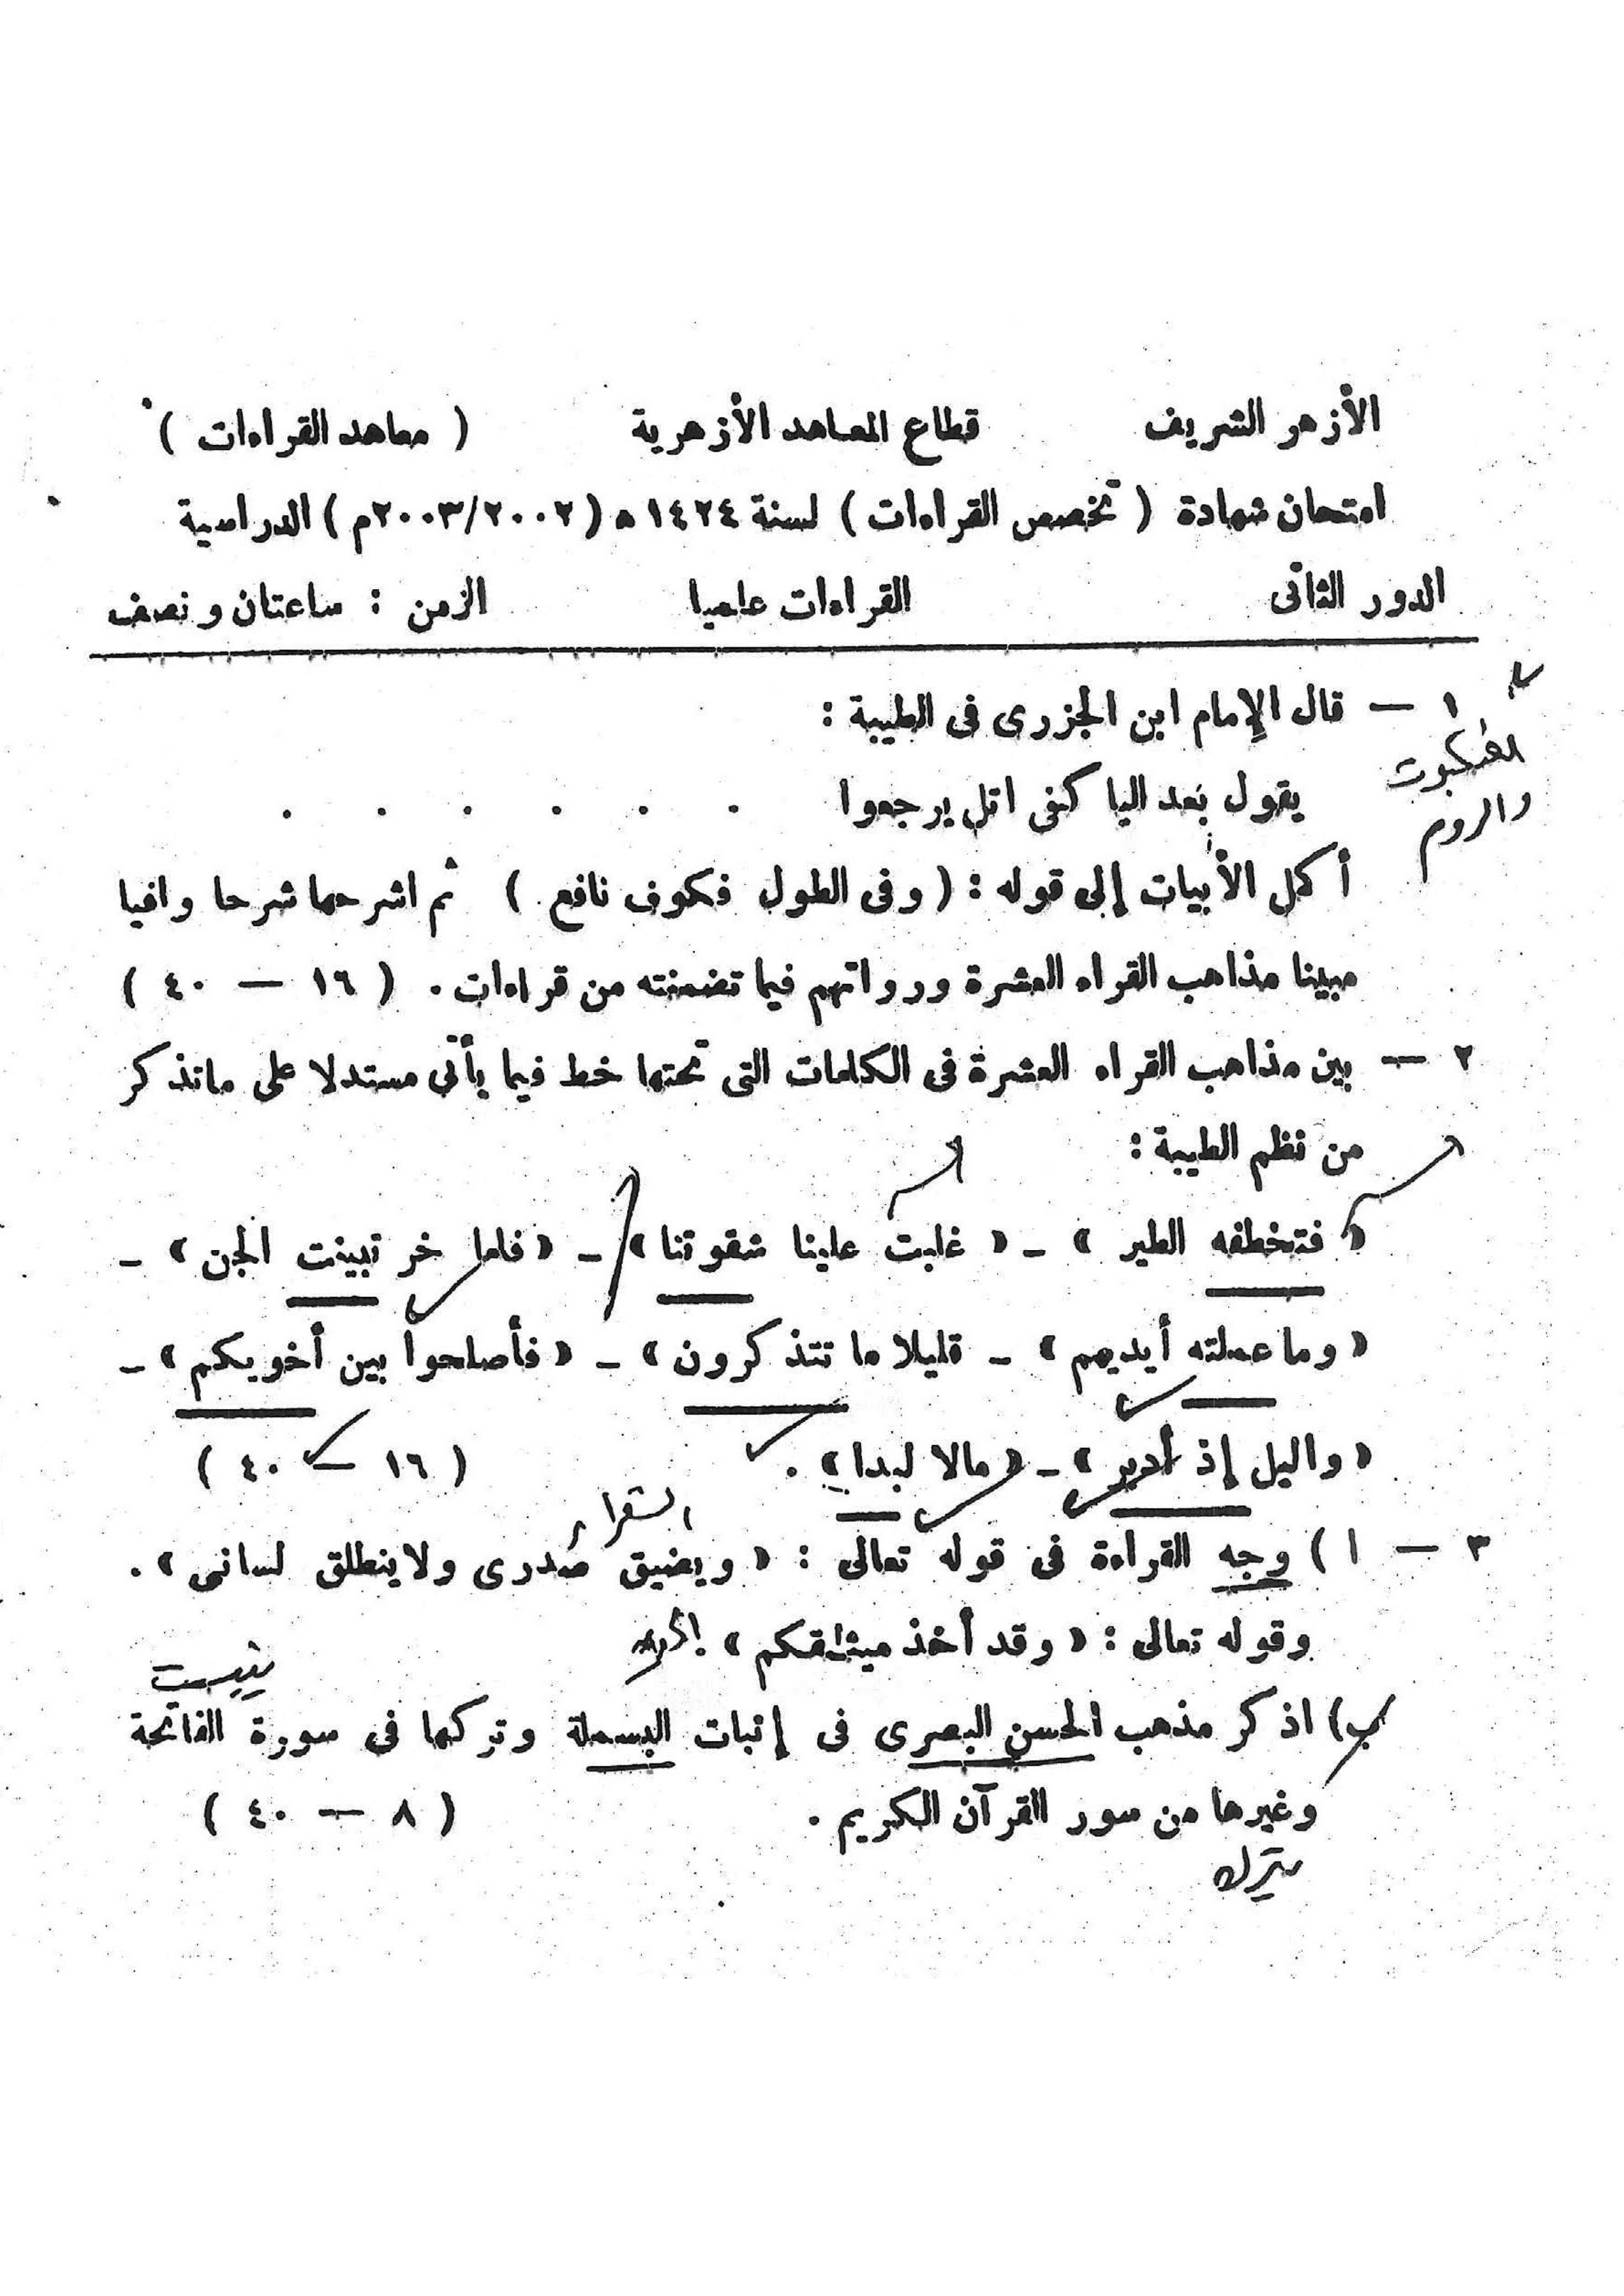 الأزهر الشريف قطاع المعاهد الأزهرية ( معاهد القراءات )
امتحان شهادة ( تخصص القراءات ) لسنة ١٤٢٤ ه ( ٢٠٠٣/٢٠٠٢م ) الدراسية
الدور الثانى القراءات علميا الزمن : ساعتان ونصف
١ — قال الإمام ابن الجزرى فى الطيبة :
العنكبوت
والروم
يقول بعد اليا كفى اتل يرجعوا . . . . . .
أكمل الأبيات إلى قوله : ( وفى الطول فكوف نافع . ) ثم اشرحها شرحا وافيا
مبينا مذاهب القراء العشرة ورواتهم فيما تضمنته من قراءات . ( ١٦ — ٤٠ )
٢ — بين مذاهب القراء العشرة فى الكلمات التى تحتها خط فيما يأتى مستدلا على ماتذكر
من نظم الطيبة :
« فتخطفه الطير » – « غلبت علينا شقوتنا » – « فلما خر تبينت الجن » –
« وما عملته أيديهم » – قليلا ما تتذكرون » – « فأصلحوا بين أخويكم » –
« واليل إذ أدبر » – « مالا لبدا » . ( ١٦ — ٤٠ )
الشعراء
٣ — ا ) وجه القراءة فى قوله تعالى : « ويضيق صدرى ولا ينطلق لسانى » .
وقوله تعالى : « وقد أخذ ميثاقكم » .
ب) اذكر مذهب الحسن البصرى فى إثبات البسملة وتركها فى سورة الفاتحة
وغيرها من سور القرآن الكريم . ( ٨ — ٤٠ )